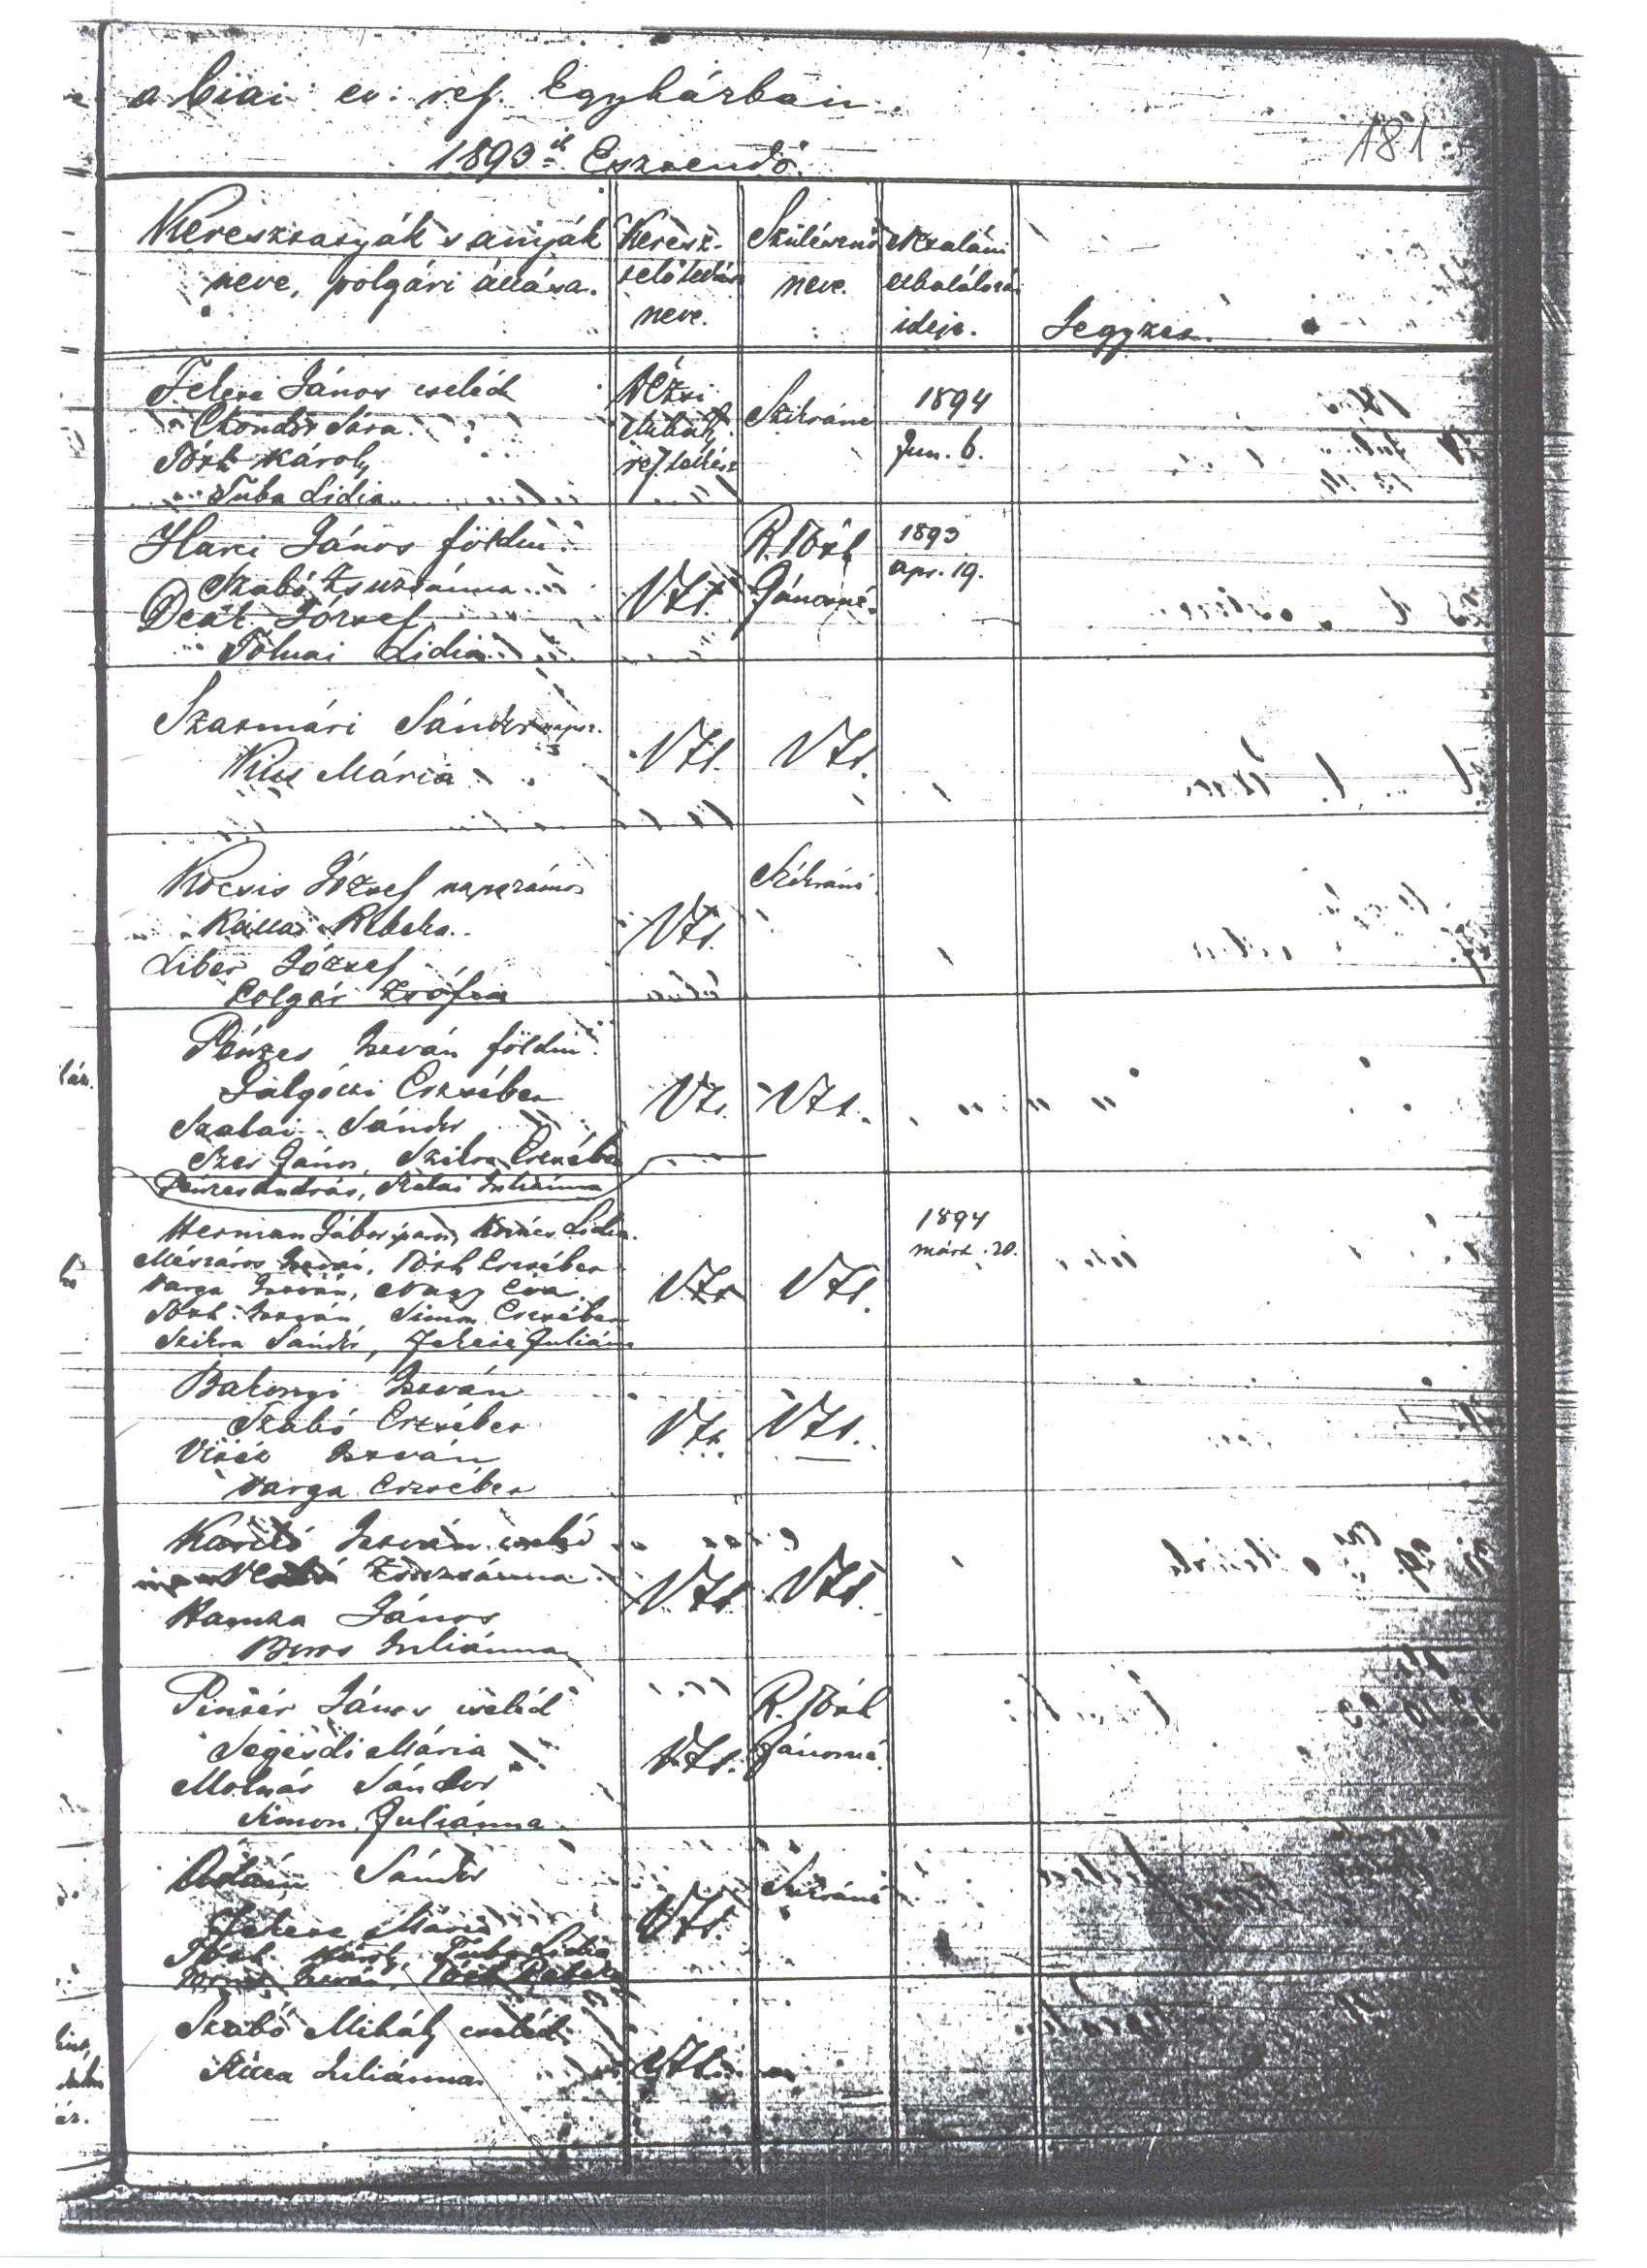 a biai ev: ref. Egyházban.
1893ik Esztendő.
181
Keresztatyák s anyák neve, polgári állása.
Keresztelő lelkész neve.
Szülésznő neve.
Netaláni elhalálozás ideje.
Jegyzet.
Fekete János cseléd
Sára
Tóth Károly
Tuba Lidia
Mihály
ref. lelkész
Szikráné
1894
Jun. 6.
Harci János földm.
Szabó Zsuzsánna
Deák József
Tolnai Lidia
Vzt.
R. Tóth
Jánosné
1893
apr. 19.
Szatmári Sándor napsz.
Kiss Mária
Vzt.
Vzt.
Kocsis József napszámos
Kállai Rebeka
Liber József
Polgár Zsófia
Vzt.
Szikráné
Pénzes István földm.
Galgóczi Erzsébet
Szalai Sándor
Szer János, Szikra Erzsébet
Pénzes András, Szalai Juliánna
Vzt.
Vzt.
Herman Gábor iparos, Kovács Lidia
Mészáros István, Tóth Erzsébet
Varga István, Nagy Éva
Tóth István, Simon Erzsébet
Szikra Sándor, Fekete Juliána
Vzt
Vzt.
1894
márt. 20.
Bakonyi István
Szabó Erzsébet
István
Varga Erzsébet
Vzt.
Vzt.
István cseléd
Zsuzsánna
János
Juliánna
Vzt
Vzt.
Pintér János cseléd
Segesdi Mária
Molnár Sándor
Simon Juliánna
Vzt.
R. Tóth
Jánosné
Ádám Sándor
Fekete Mária
Tóth Károly, Tuba Lidia
István, Tóth Rebeka
Vzt.
Szikráné
Szabó Mihály cseléd
Juliánna